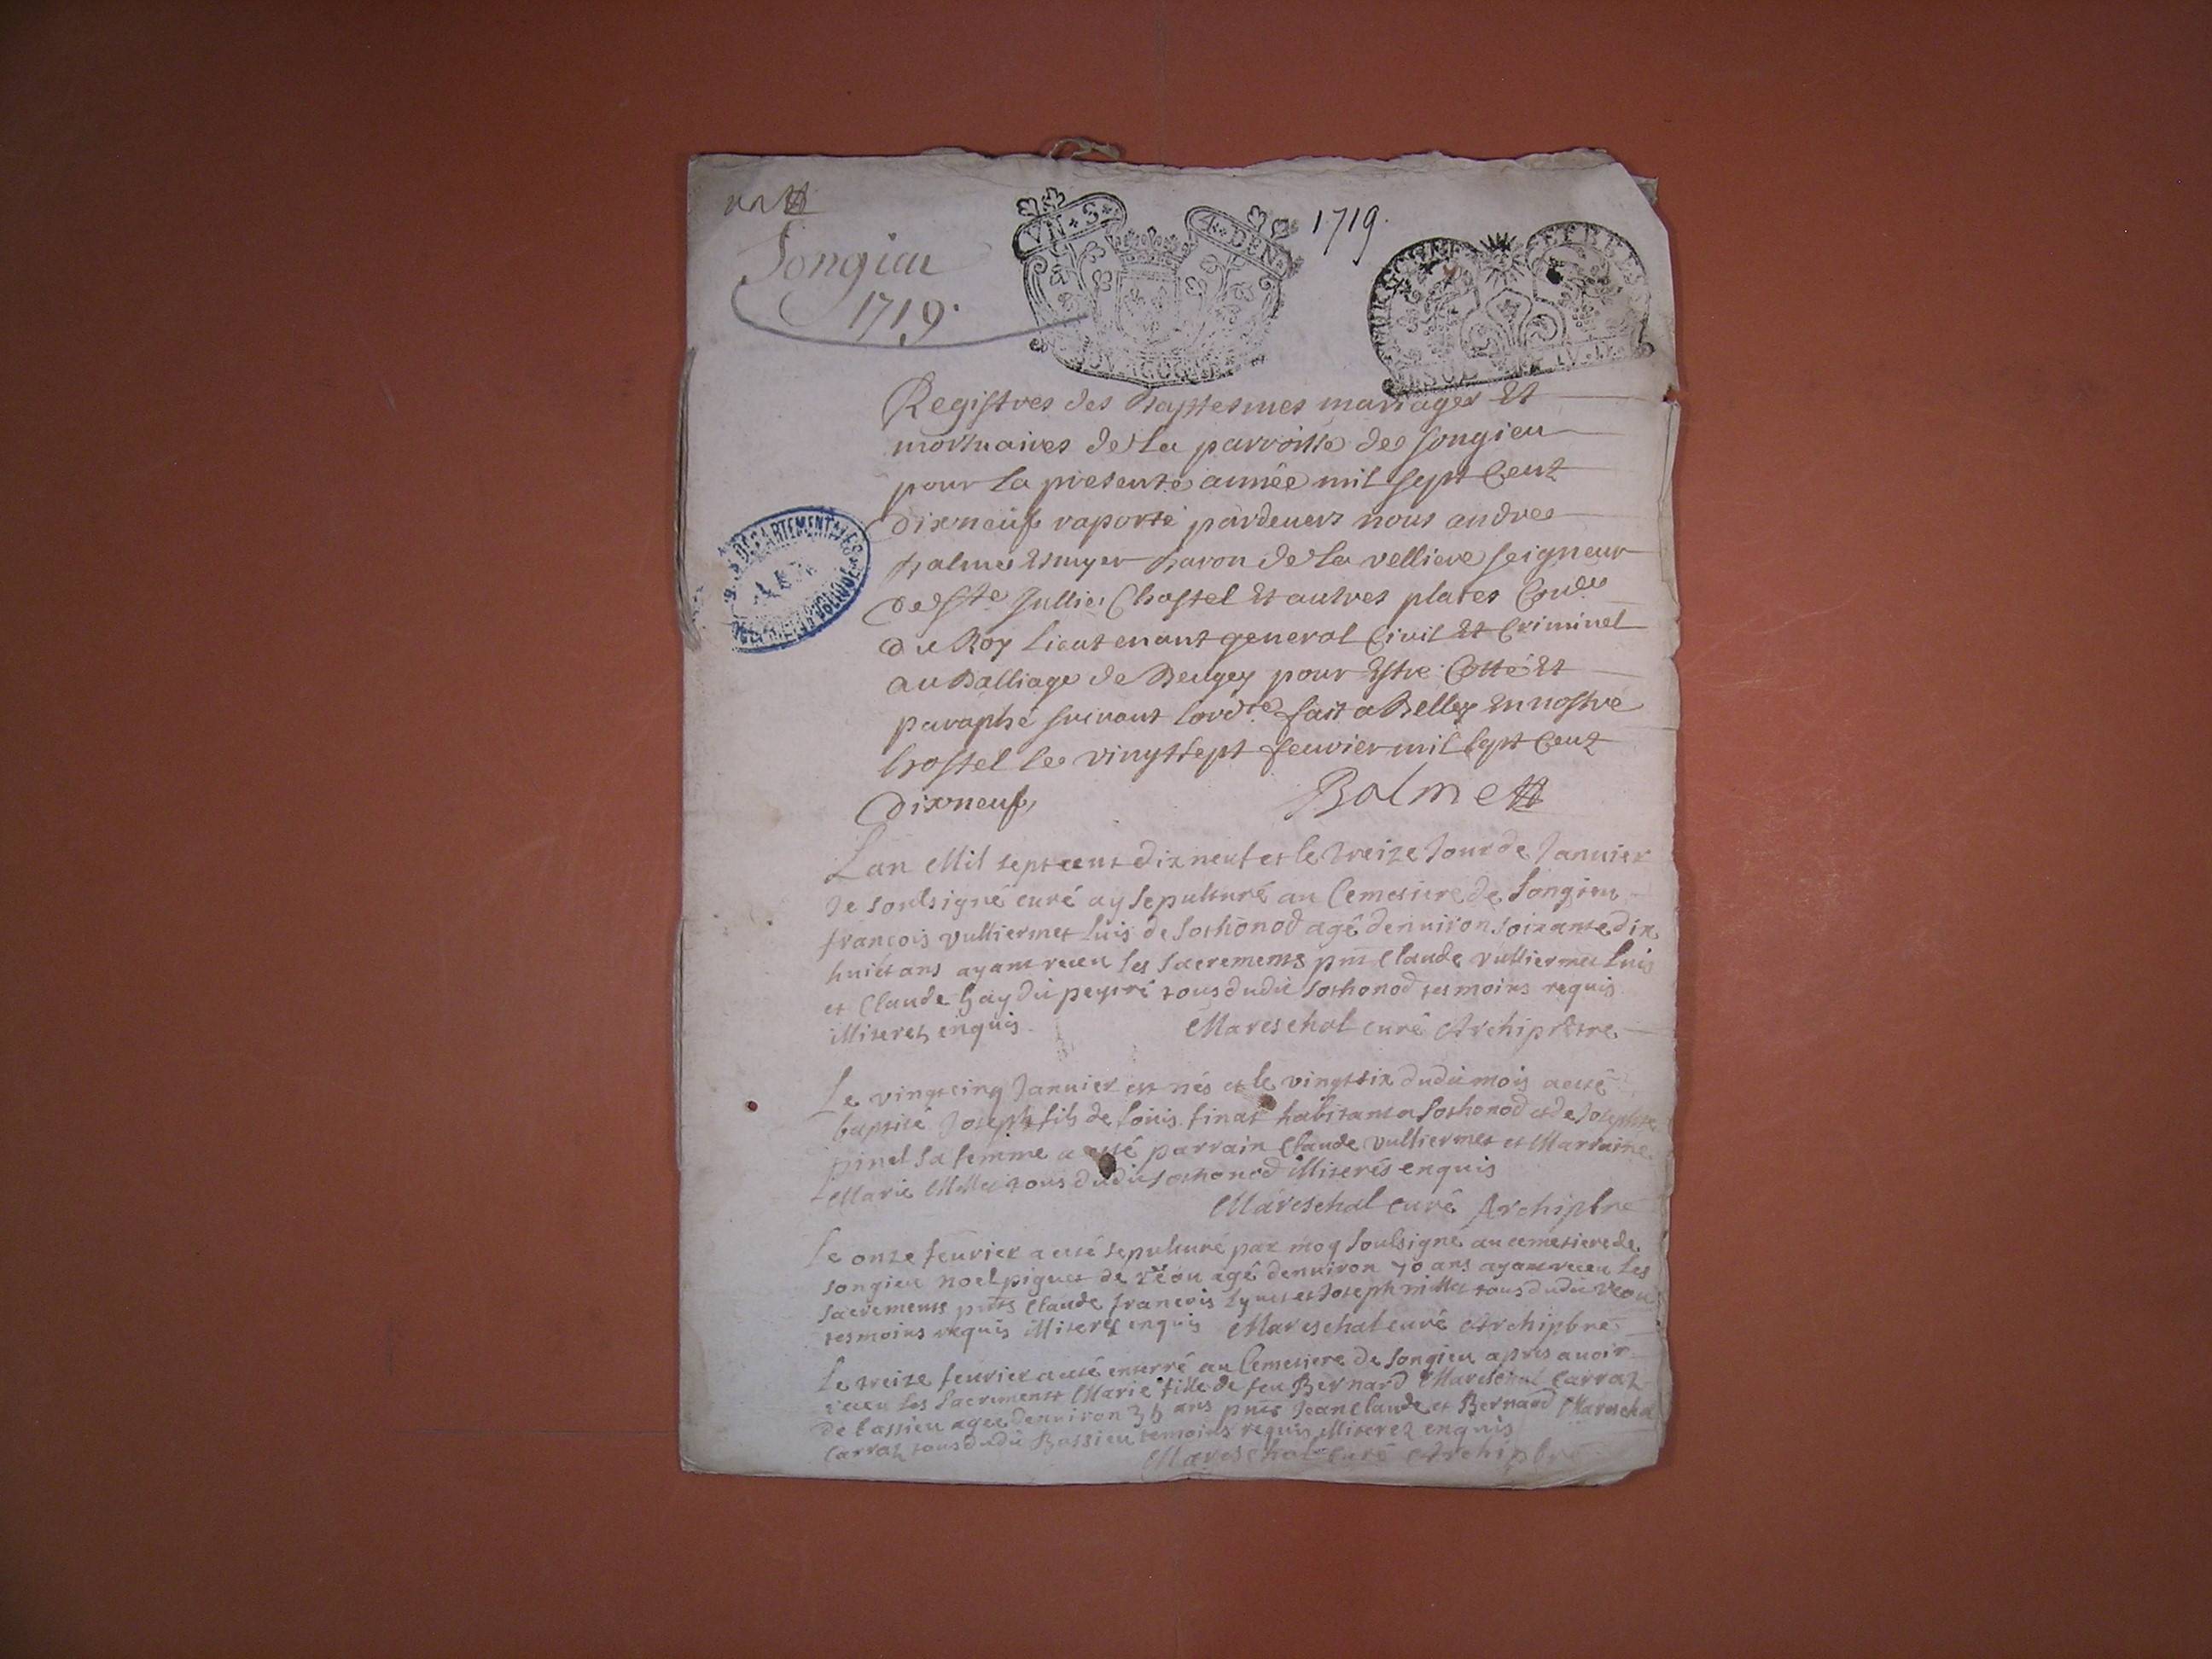 Songieu
1719.
VN·S·
4·DEN·
1719.
Registres des baptesmes mariages Et
mortuaires de la parroisse de Songieu
pour la presente année mil sept Cent
dixneuf raporté pardevers nous andré
balme Escuyer baron de la velliere seigneur
de Ste Jullie Chastel Et autres places Coner
du Roy Lieutenant general Civil Et Criminel
au Balliage de Beugey pour Estre Cotté Et
paraphé suivant lordce fait a Belley En nostre
hostel le vingtsept feuvrier mil sept Cent
dixneuf,
Balme
Lan Mil sept cent dix neuf et le treize Jour de Januier
Je soubsigné curé ay sepulturé au Cemetiere de Songieu
françois vulliermet Luis de Sothonod agé denuiron soixante dix
huict ans ayant receu les sacrements pnts Claude vulliermet Luis
et Claude hay du peyré tous dudit Sothonod tesmoins requis
illiterez enquis Mareschal curé Archiprêtre
Le vingtcinq Januier est nés et le vingtsix dudit mois a esté
baptisé Joseph fils de Louis finat habitant a Sothonod et de Josephte
pinel sa femme a esté parrain Claude vulliermet et Marraine
Marie Millet tous dudit Sothonod illiterés enquis
Mareschal curé Archipbre
Le onze feurier a esté sepulturé par moy soubsigné au cemetiere de
songieu noel piguet de réou agé denuiron 70 ans ayant receu les
sacrements pnts Claude françois et Joseph millet tous dudit reou
tesmoins requis illiterez enquis Mareschal curé Archipbre
Le treize feurier a esté enterré au Cemetiere de Songieu apres auoir
receu les Sacrements Marie fille de feu Bernard Mareschal Carraz
de bassieu agee denuiron 35 ans pnts Jean Claude et Bernard Mareschal
Carraz tous dudit Bassieu temoins requis illiterez enquis
Mareschal curé Archipbre